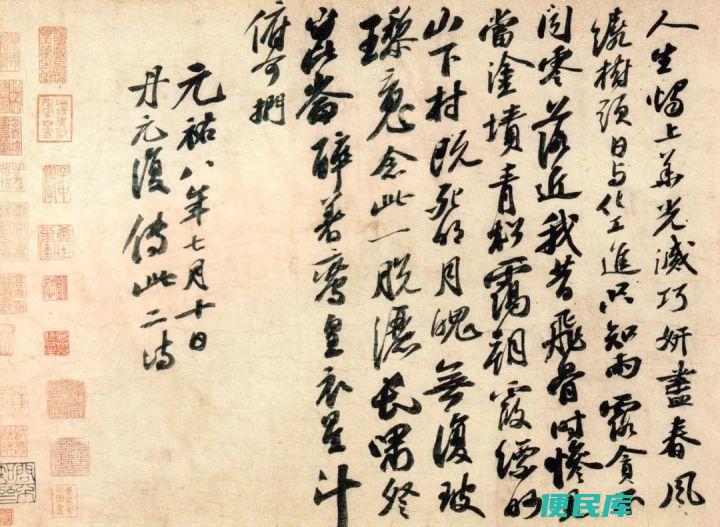 人生燭上華光滅巧妍盡春風
繞樹頭日与化工進只知雨露貪不
聞零落近我昔飛骨時慘見
當塗墳青松靄朝霞縹緲
山下村既死明月魄無復玻
瓈魂念此一脫灑長嘯登
崑崙醉著鸞皇衣星斗
俯可捫
元祐八年七月十日
丹元復傳此二詩
便民库